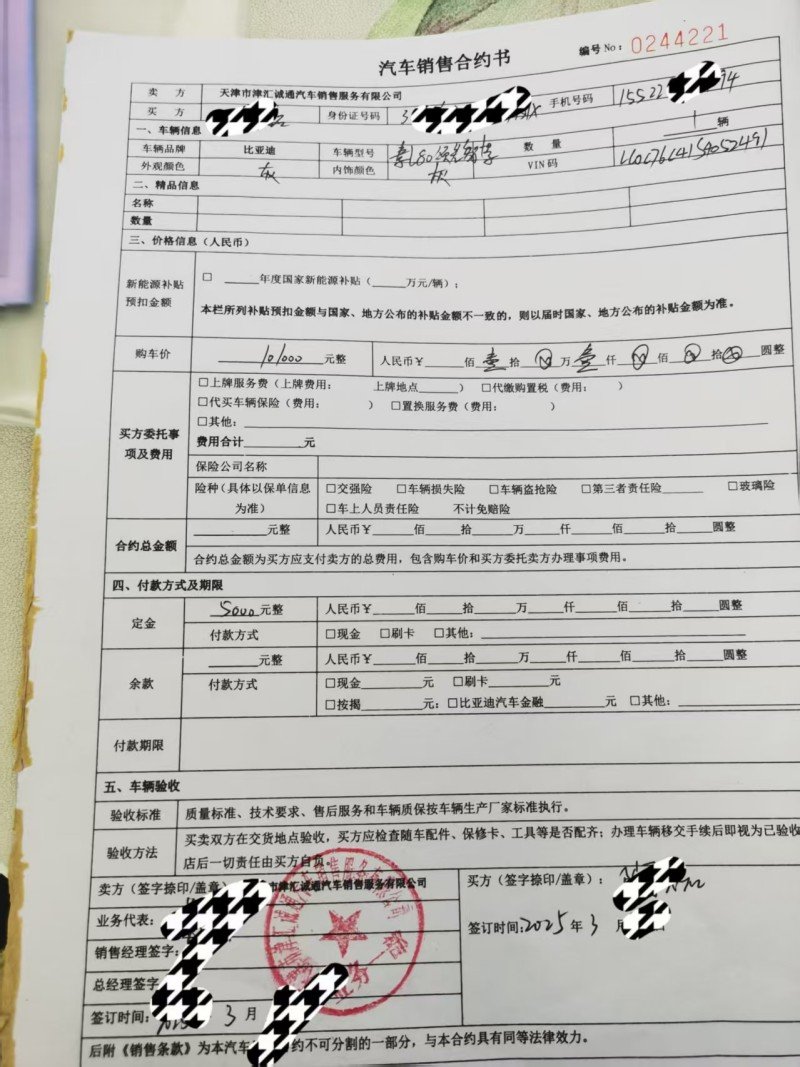 汽车销售合约书
编号No：0244221
卖 方 天津市津汇诚通汽车销售服务有限公司
买 方 身份证号码 手机号码 15522 94
一、车辆信息
车辆品牌 比亚迪 车辆型号 秦L80 数 量 1 辆
外观颜色 灰 内饰颜色 灰 VIN码
二、精品信息
名称
数量
三、价格信息（人民币）
新能源补贴预扣金额
□ ______年度国家新能源补贴（_____万元/辆）；
本栏所列补贴预扣金额与国家、地方公布的补贴金额不一致的，则以届时国家、地方公布的补贴金额为准。
购车价 101000 元整 人民币￥ 佰 壹 拾 万 壹 仟 佰 拾 圆整
买方委托事项及费用
□上牌服务费（上牌费用： 上牌地点_____） □代缴购置税（费用： ）
□代买车辆保险（费用： ） □置换服务费（费用： ）
□其他：
费用合计________元
保险公司名称
险种（具体以保单信息为准）
□交强险 □车辆损失险 □车辆盗抢险 □第三者责任险______ □玻璃险
□车上人员责任险 不计免赔险
合约总金额
________元整 人民币￥____佰____拾____万____仟____佰____拾____圆整
合约总金额为买方应支付卖方的总费用，包含购车价和买方委托卖方办理事项费用。
四、付款方式及期限
定金 5000 元整 人民币￥____佰____拾____万____仟____佰____拾____圆整
付款方式 □现金 □刷卡 □其他：
余款 ______元整 人民币￥____佰____拾____万____仟____佰____拾____圆整
付款方式 □现金________元 □刷卡________元
□按揭________元；□比亚迪汽车金融________元 □其他：
付款期限
五、车辆验收
验收标准 质量标准、技术要求、售后服务和车辆质保按车辆生产厂家标准执行。
验收方法 买卖双方在交货地点验收，买方应检查随车配件、保修卡、工具等是否配齐；办理车辆移交手续后即视为已验收
店后一切责任由买方自负。
卖方（签字捺印/盖章） 市津汇诚通汽车销售服务有限公司
业务代表：
销售经理签字：
总经理签字
签订时间： 3 月
买方（签字捺印/盖章）：
签订时间：2025 年 3 月
后附《销售条款》为本汽车 约不可分割的一部分，与本合约具有同等法律效力。